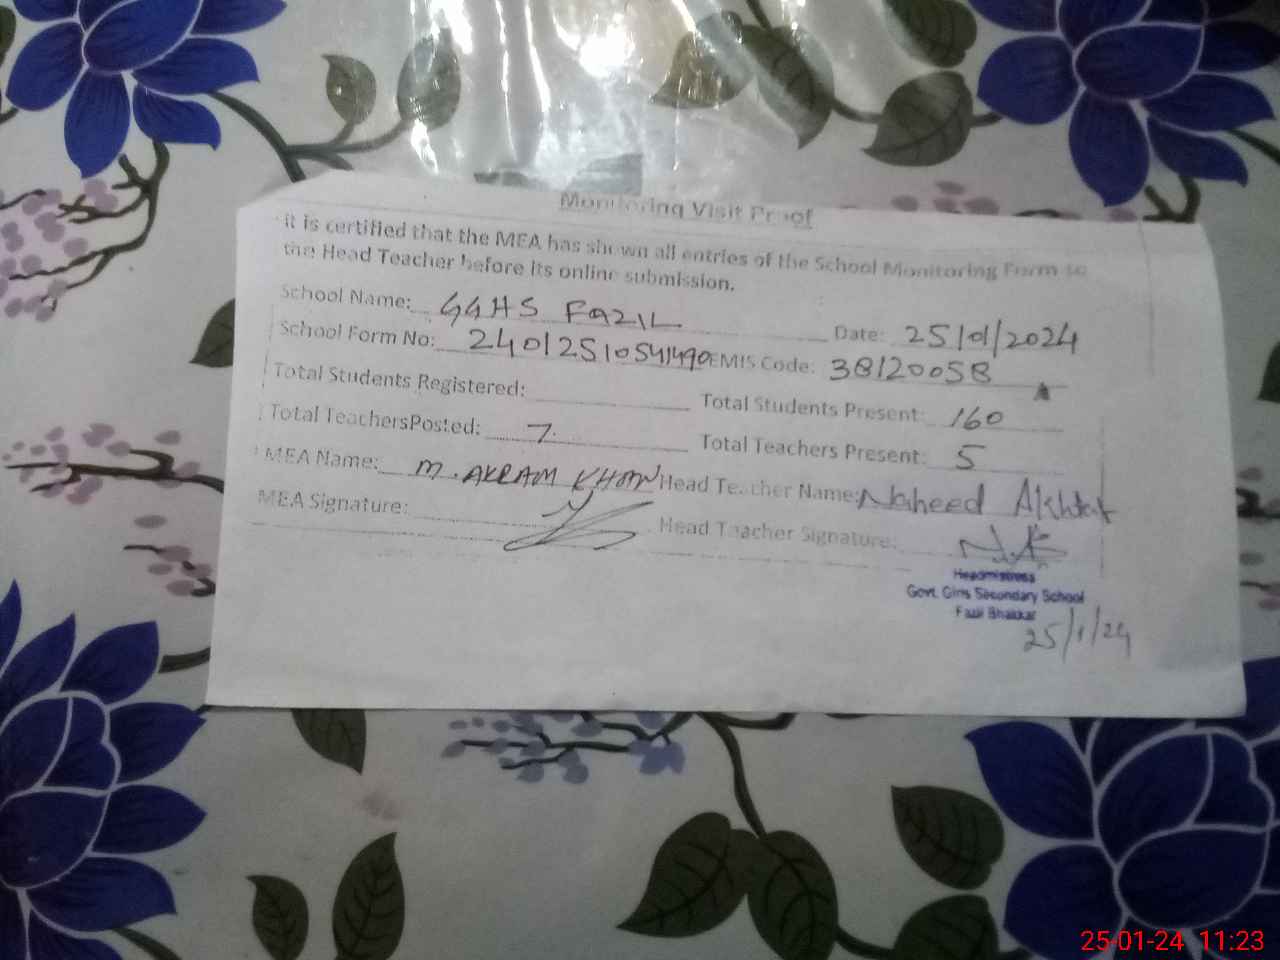 Monitoring Visit Proof
It is certified that the MEA has shown all entries of the School Monitoring Form to
the Head Teacher before its online submission.
School Name: GGHS FAZIL Date: 25/01/2024
School Form No: 24012510541490 EMIS Code: 38120058
Total Students Registered: Total Students Present: 160
Total TeachersPosted: 7 Total Teachers Present: 5
MEA Name: M. AKRAM KHAN Head Teacher Name: Naheed Akhtar
MEA Signature: Head Teacher Signature: N.A
Headmistress
Govt. Girls Secondary School
Fazil Bhakkar
25/1/24
25-01-24 11:23